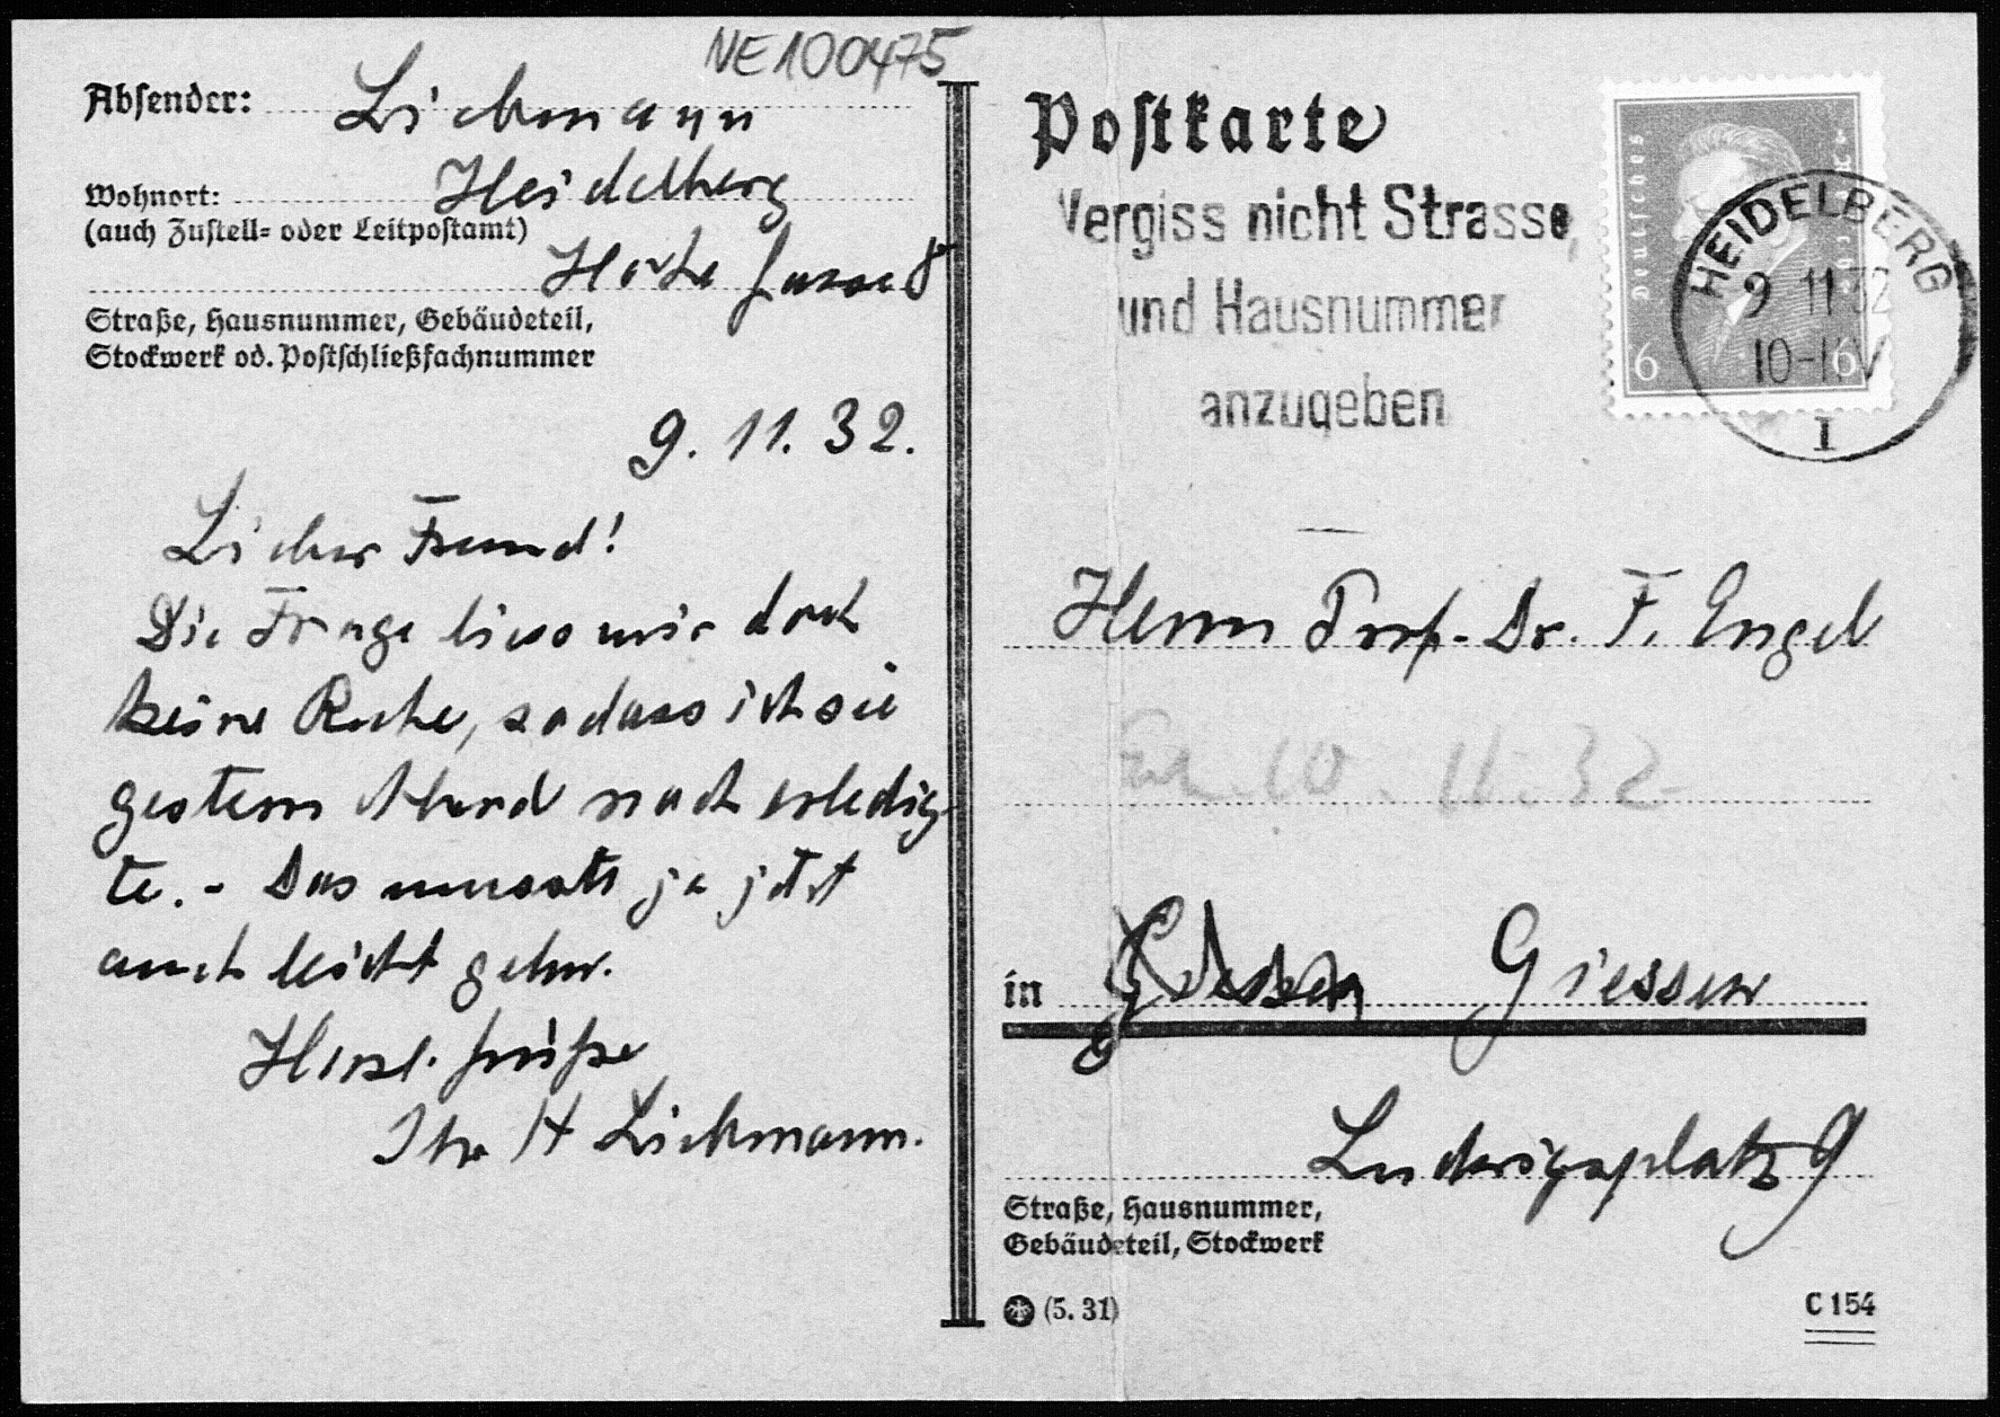 NE100475
Absender: Liebmann
Wohnort: Heidelberg
(auch Zustell= oder Leitpostamt)
Hohe Gasse 8
Straße, Hausnummer, Gebäudeteil,
Stockwerk od. Postschließfachnummer
9. 11. 32.
Lieber Freund!
Die Frage liess mir doch
keine Ruhe, sodass ich sie
gestern Abend noch erledig-
te. - Das musste ja jetzt
auch leicht gehn.
Herzl. Grüße
Ihr H Liebmann.
Postkarte
Vergiss nicht Strasse,
und Hausnummer
anzugeben
Deutsches Reich
6 6
HEIDELBERG
9 11 32
10-11 V
1
Herrn Prof. Dr. F. Engel
10. 11. 32
in Giessen
Ludwigsplatz 9
Straße, Hausnummer,
Gebäudeteil, Stockwerk
(5. 31)
C 154